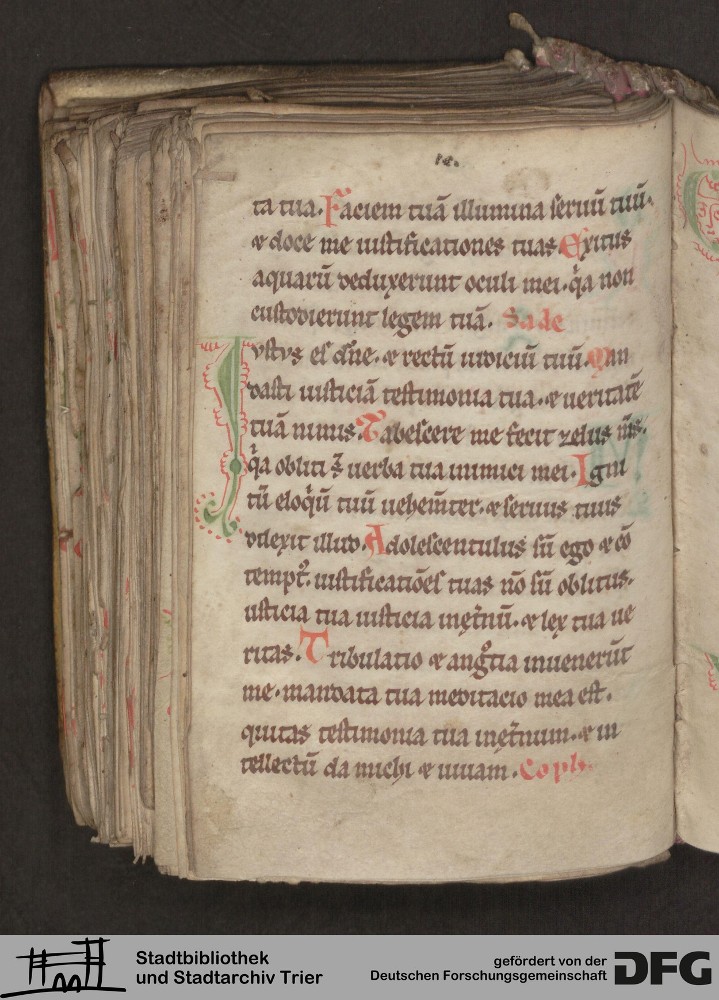 ta tua. Faciem tuā illumina seruū tuū.
⁊ doce me iustificationes tuas Exitus
aquarū deduxerunt oculi mei. q̇a non
custodierunt legem tuā. Sade
Iustus es dn̄e. ⁊ rectū iudiciū tuū. Man
dasti iusticiā testimonia tua. ⁊ ueritatē
tuā nimis. Tabescere me fecit zelus m̄s.
q̇a obliti s̄ uerba tua inimici mei. Igni
tū eloq̇ū tuū uehem̄ter. ⁊ seruus tuus
dilexit illud. Adolescentulus sū ego ⁊ cō
tempt᷒. iustificatiōes tuas nō sū oblitus.
usticia tua iusticia inęt̄nū. ⁊ lex tua ue
ritas. Tribulatio ⁊ angͦtia inuenerūt
me. mandata tua meditacio mea est.
quitas testimonia tua inęt̄num. ⁊ in
tellectū da michi ⁊ uiuam. Coph.
Stadtbibliothek
und Stadtarchiv Trier
gefördert von der
Deutschen Forschungsgemeinschaft
DFG